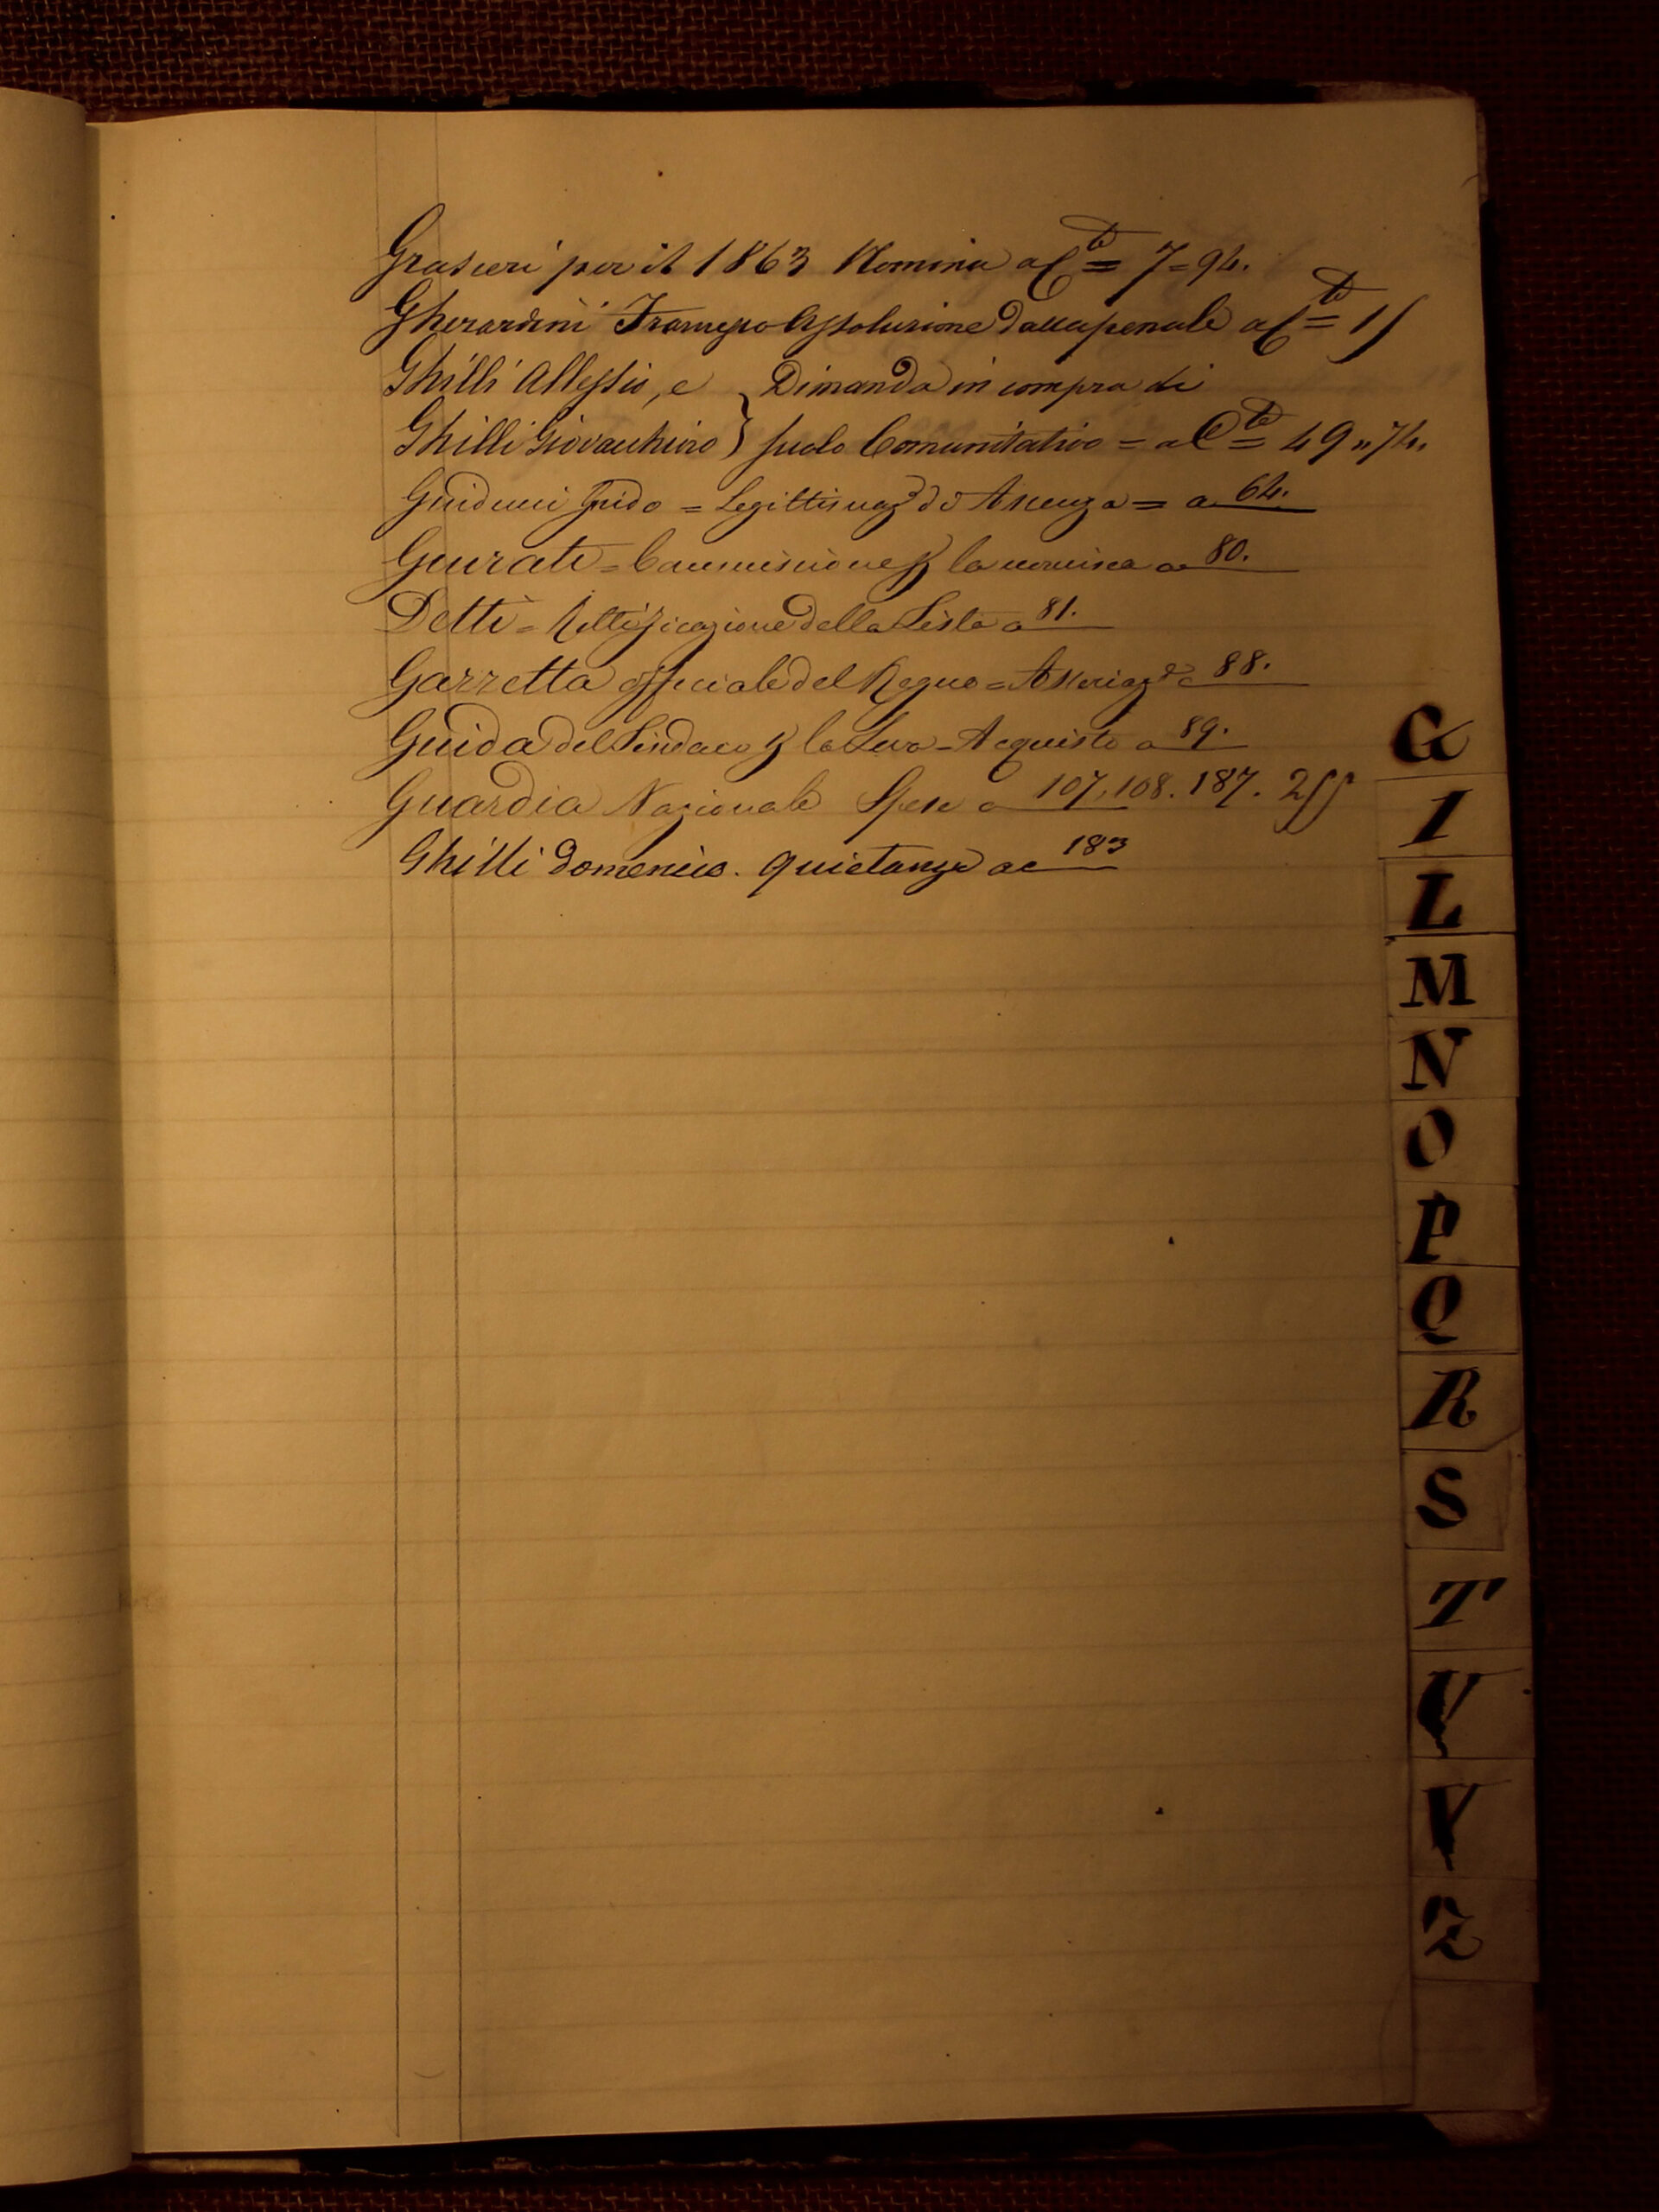 Grascieri per il 1863 Nomina a Cte = 7 = 94.
Gherardini Francesco Assoluzione dalla penale a Cte = 15
Ghilli Allessio, e } Dimanda in compra di
Ghilli Giovacchino } suolo Comunitativo = a Cte = 49 " 74.
Guiducci Guido = Legittimaze di Assenza = a 64.
Giurati = Commissione p la nomina a 80.
Detti = Rettificazione della Lista a 81.
Gazzetta officiale del Regno = Associaze a 88.
Guida del Sindaco p la Leva = Acquisto a 89.
Guardia Nazionale Spese a 107. 108. 187. 255
Ghilli Domenico. Quietanza a c 183
G
I
L
M
N
O
P
Q
R
S
T
V
Z